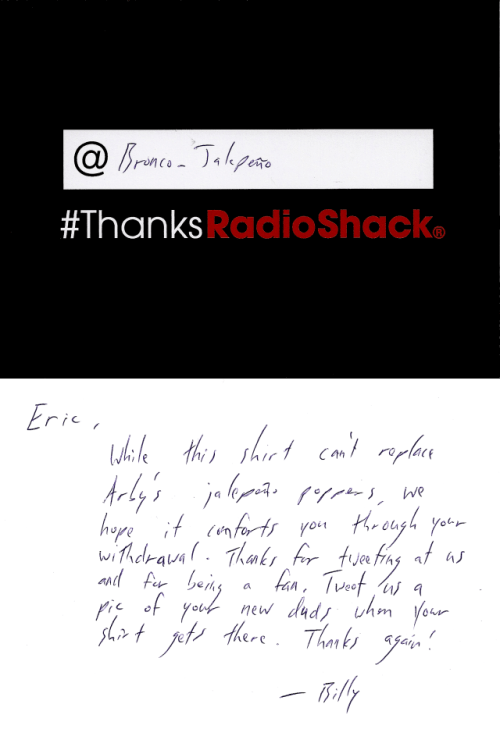 @ Bronco_Jalepeño
#ThanksRadioShack®
Eric,
While this shirt can't replace
Arby's jalepeño poppers, we
hope it comforts you through your
withdrawal. Thanks for tweeting at us
and for being a fan. Tweet us a
pic of your new duds when your
shirt gets there. Thanks again!
— Billy